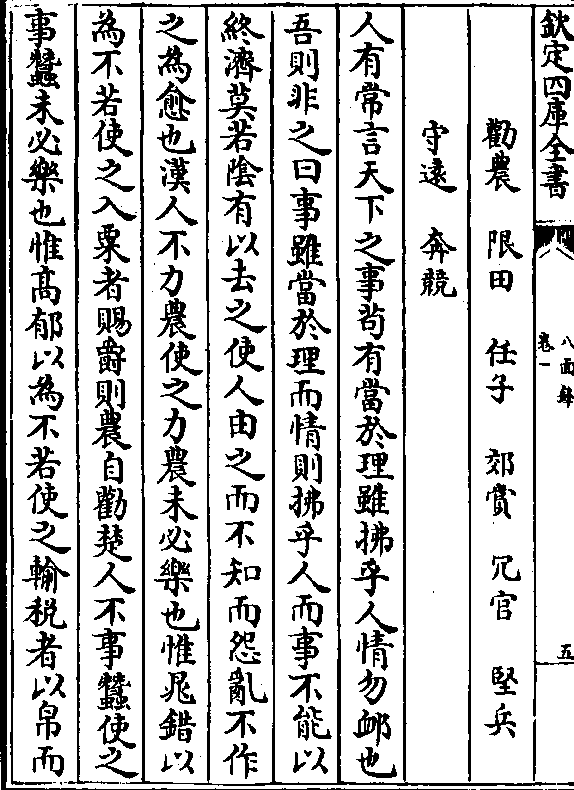 欽定四庫全書
八面鋒
卷一
五
勸農 限田 任子 郊賞 冗官 堅兵
守遠 奔競
人有常言天下之事茍有當於理雖拂乎人情勿䘏也
吾則非之曰事雖當於理而情則拂乎人而事不能以
終濟莫若陰有以去之使人由之而不知而怨亂不作
之為愈也漢人不力農使之力農未必樂也惟鼂錯以
為不若使之入粟者賜爵則農自勸楚人不事蠶使之
事蠶未必樂也惟髙郁以為不若使之輸稅者以帛而